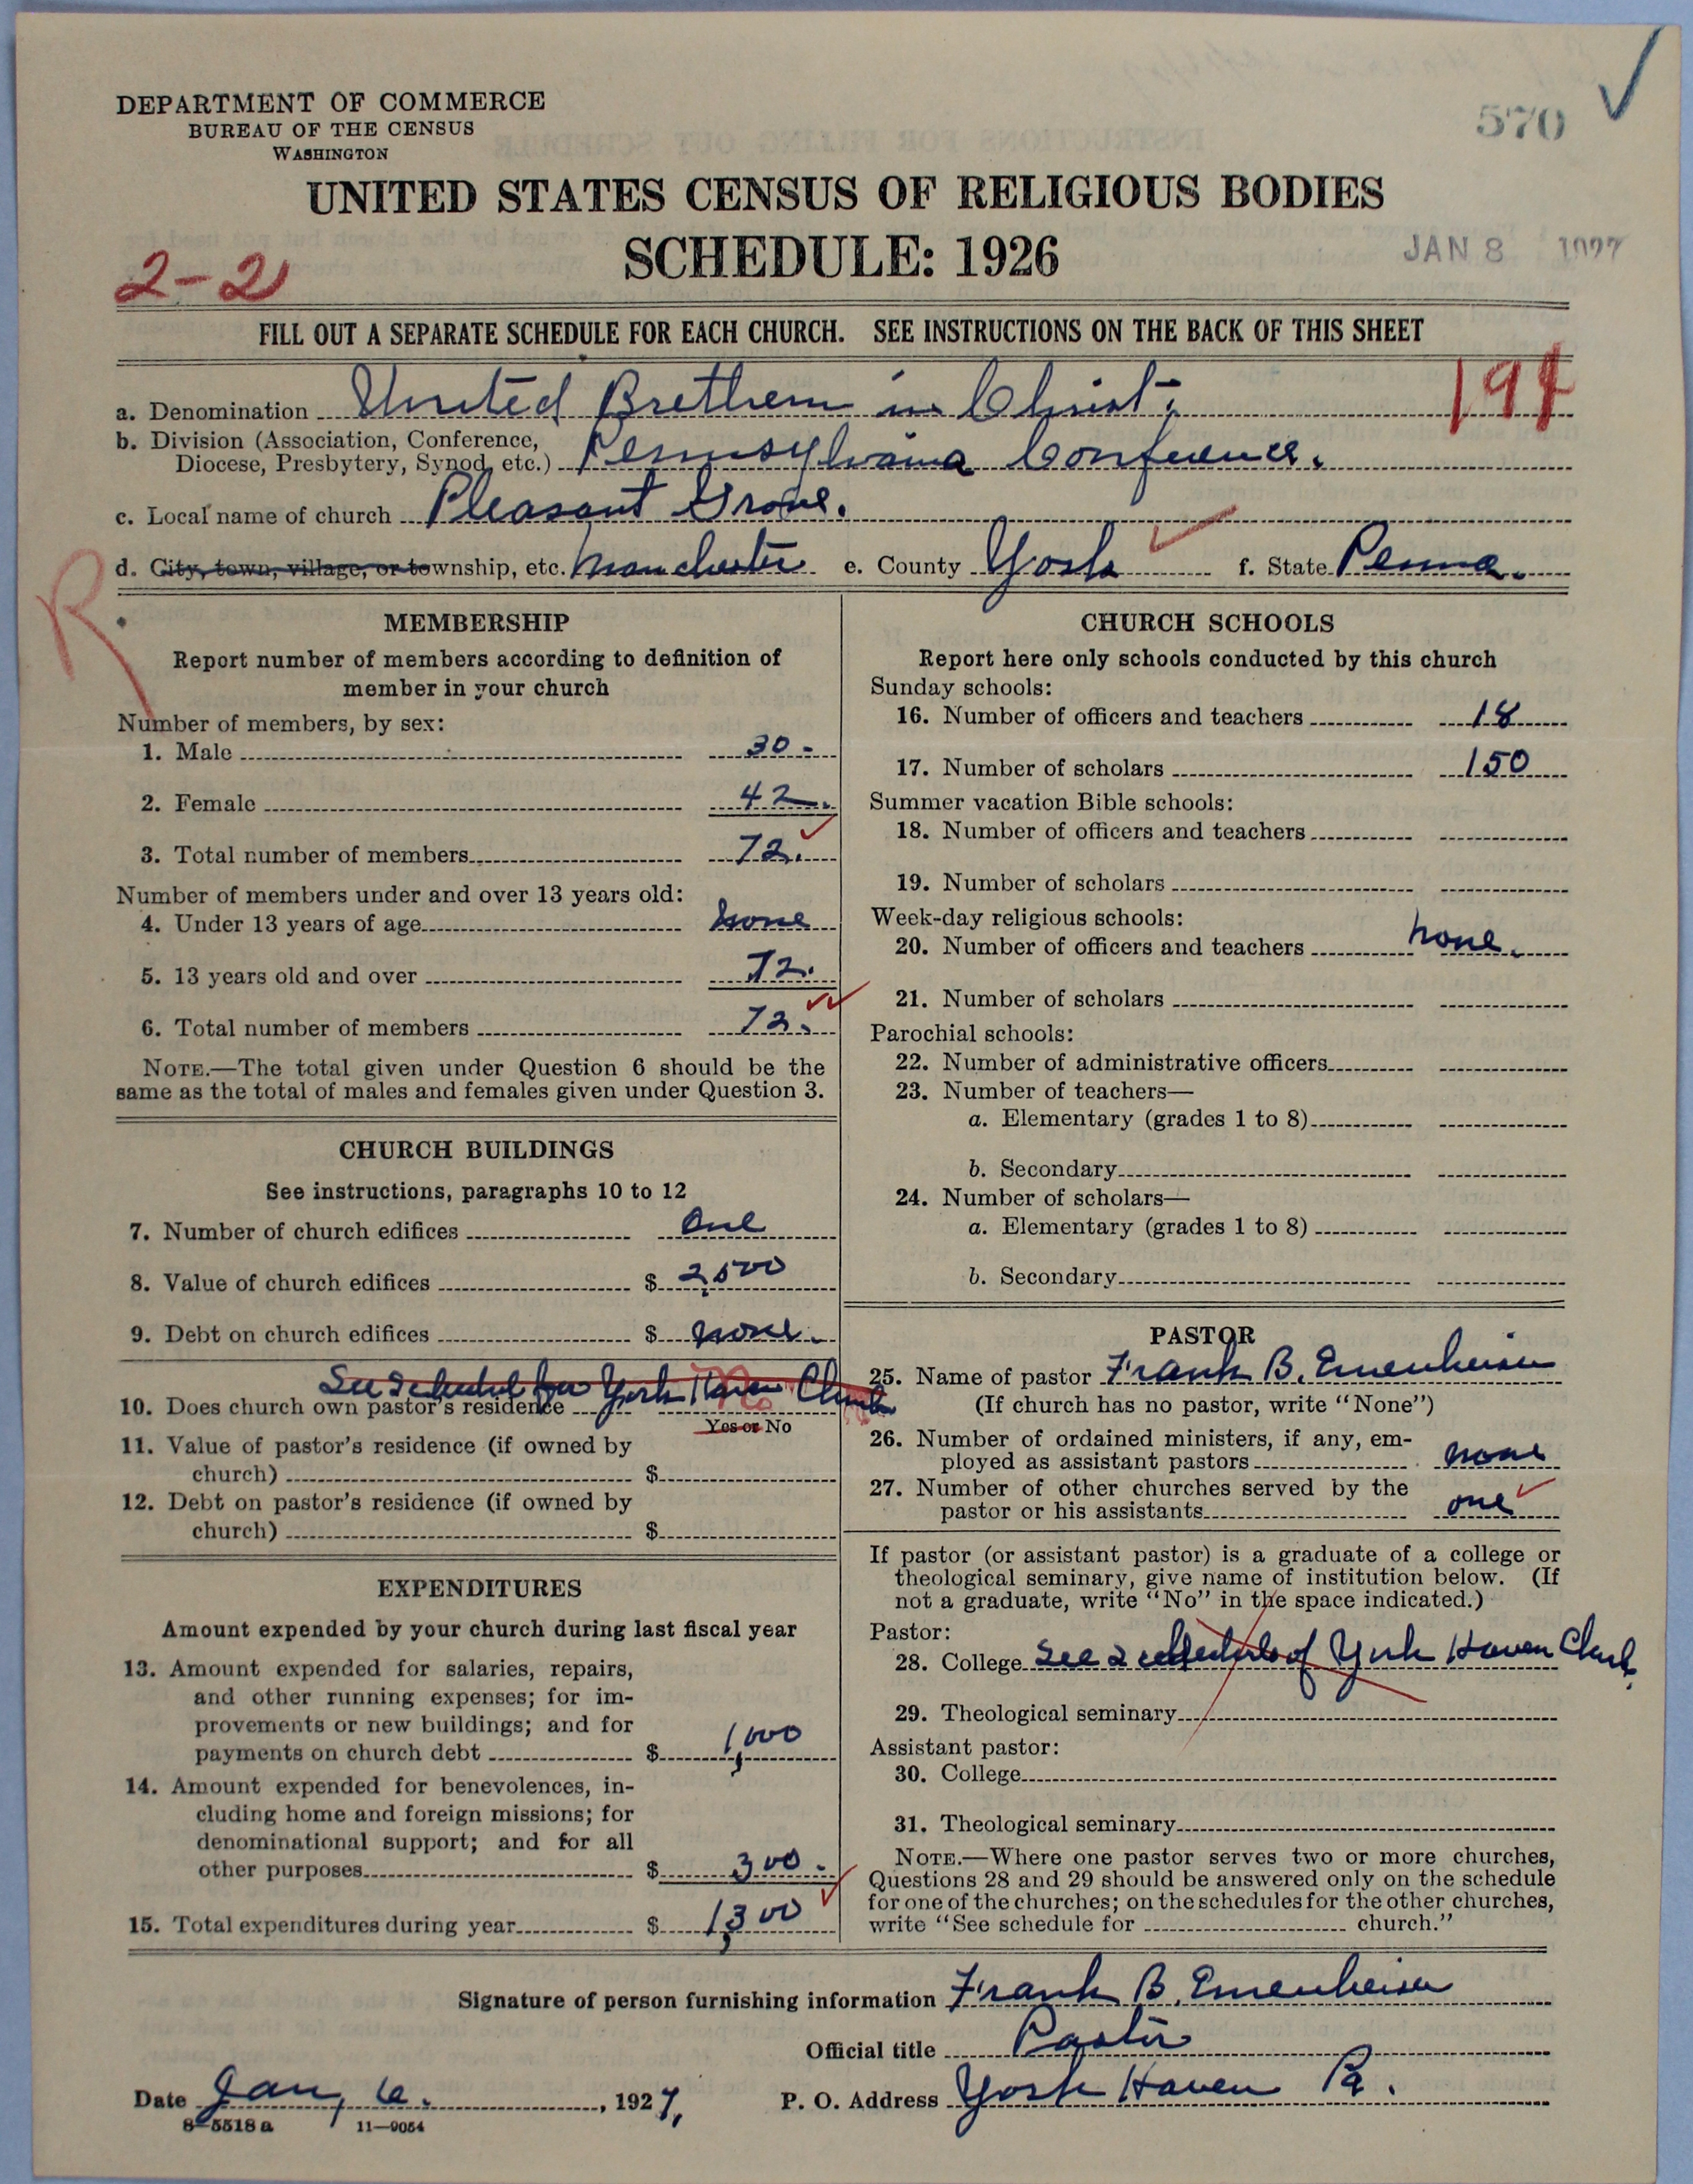 570
DEPARTMENT OF COMMERCE
BUREAU OF THE CENSUS
WASHINGTON
UNITED STATES CENSUS OF RELIGIOUS BODIES
SCHEDULE: 1926
JAN 8 1927
2-2
FILL OUT A SEPARATE SCHEDULE FOR EACH CHURCH. SEE INSTRUCTIONS ON THE BACK OF THIS SHEET
a. Denomination United Brethern in Christ.
b. Division (Association, Conference,
Diocese, Presbytery, Synod, etc.) Pennsylvania Conference.
c. Local name of church Pleasant Grove.
d. City, town, village, or township, etc. Manchester e. County York f. State Penna.
R
MEMBERSHIP
Report number of members according to definition of
member in your church
Number of members, by sex:
1. Male 30
2. Female 42.
3. Total number of members 72.
Number of members under and over 13 years old:
4. Under 13 years of age none
5. 13 years old and over 72.
6. Total number of members 72.
NOTE.—The total given under Question 6 should be the
same as the total of males and females given under Question 3.
CHURCH BUILDINGS
See instructions, paragraphs 10 to 12
7. Number of church edifices One
8. Value of church edifices $ 2,500
9. Debt on church edifices $ none.
See schedule for York Haven Church
10. Does church own pastor's residence No
Yes or No
11. Value of pastor's residence (if owned by
church) $
12. Debt on pastor's residence (if owned by
church) $
EXPENDITURES
Amount expended by your church during last fiscal year
13. Amount expended for salaries, repairs,
and other running expenses; for im-
provements or new buildings; and for
payments on church debt $ 1,000
14. Amount expended for benevolences, in-
cluding home and foreign missions; for
denominational support; and for all
other purposes $ 300
15. Total expenditures during year $ 1,300
CHURCH SCHOOLS
Report here only schools conducted by this church
Sunday schools:
16. Number of officers and teachers 18
17. Number of scholars 150
Summer vacation Bible schools:
18. Number of officers and teachers
19. Number of scholars
Week-day religious schools:
20. Number of officers and teachers none.
21. Number of scholars
Parochial schools:
22. Number of administrative officers
23. Number of teachers—
a. Elementary (grades 1 to 8)
b. Secondary
24. Number of scholars—
a. Elementary (grades 1 to 8)
b. Secondary
PASTOR
25. Name of pastor Frank B. Emenheiser
(If church has no pastor, write "None")
26. Number of ordained ministers, if any, em-
ployed as assistant pastors none
27. Number of other churches served by the
pastor or his assistants one
If pastor (or assistant pastor) is a graduate of a college or
theological seminary, give name of institution below. (If
not a graduate, write "No" in the space indicated.)
Pastor:
28. College See schedule of York Haven Church.
29. Theological seminary
Assistant pastor:
30. College
31. Theological seminary
NOTE.—Where one pastor serves two or more churches,
Questions 28 and 29 should be answered only on the schedule
for one of the churches; on the schedules for the other churches,
write "See schedule for church."
Signature of person furnishing information Frank B. Emenheiser
Official title Pastor
Date Jan, 6., 1927, P. O. Address York Haven Pa.
8-5518 a 11-9054